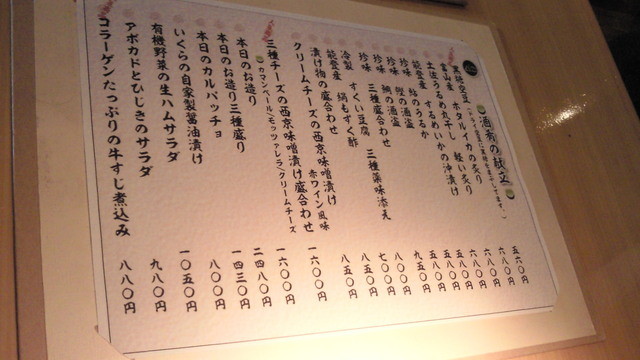 酒肴の献立
黒胡空豆 五六〇円
富山産 ホタルイカの炙り 軽い炙り 六八〇円
土佐うるめ丸干し 六八〇円
能登産 するめいかの沖漬け 五八〇円
珍味 鮎のうるか
珍味 鰹の酒盗
珍味 鯛の酒盗 八〇〇円
珍味 三種盛合わせ
冷製 すくい豆腐 三種薬味添え
能登産 絹もずく酢 八五〇円
漬け物の盛合わせ
クリームチーズの西京味噌漬け 赤ワイン風味 一六〇〇円
三種チーズの西京味噌漬け盛合わせ 一六〇〇円
カマンベール/モッツァレラ/クリームチーズ
本日のお造り 二四八〇円
本日のお造り三種盛り 一四三〇円
本日のカルパッチョ 八〇〇円
いくらの自家製醤油漬け 一〇五〇円
有機野菜の生ハムサラダ 九八〇円
アボカドとひじきのサラダ 八八〇円
コラーゲンたっぷりの牛すじ煮込み